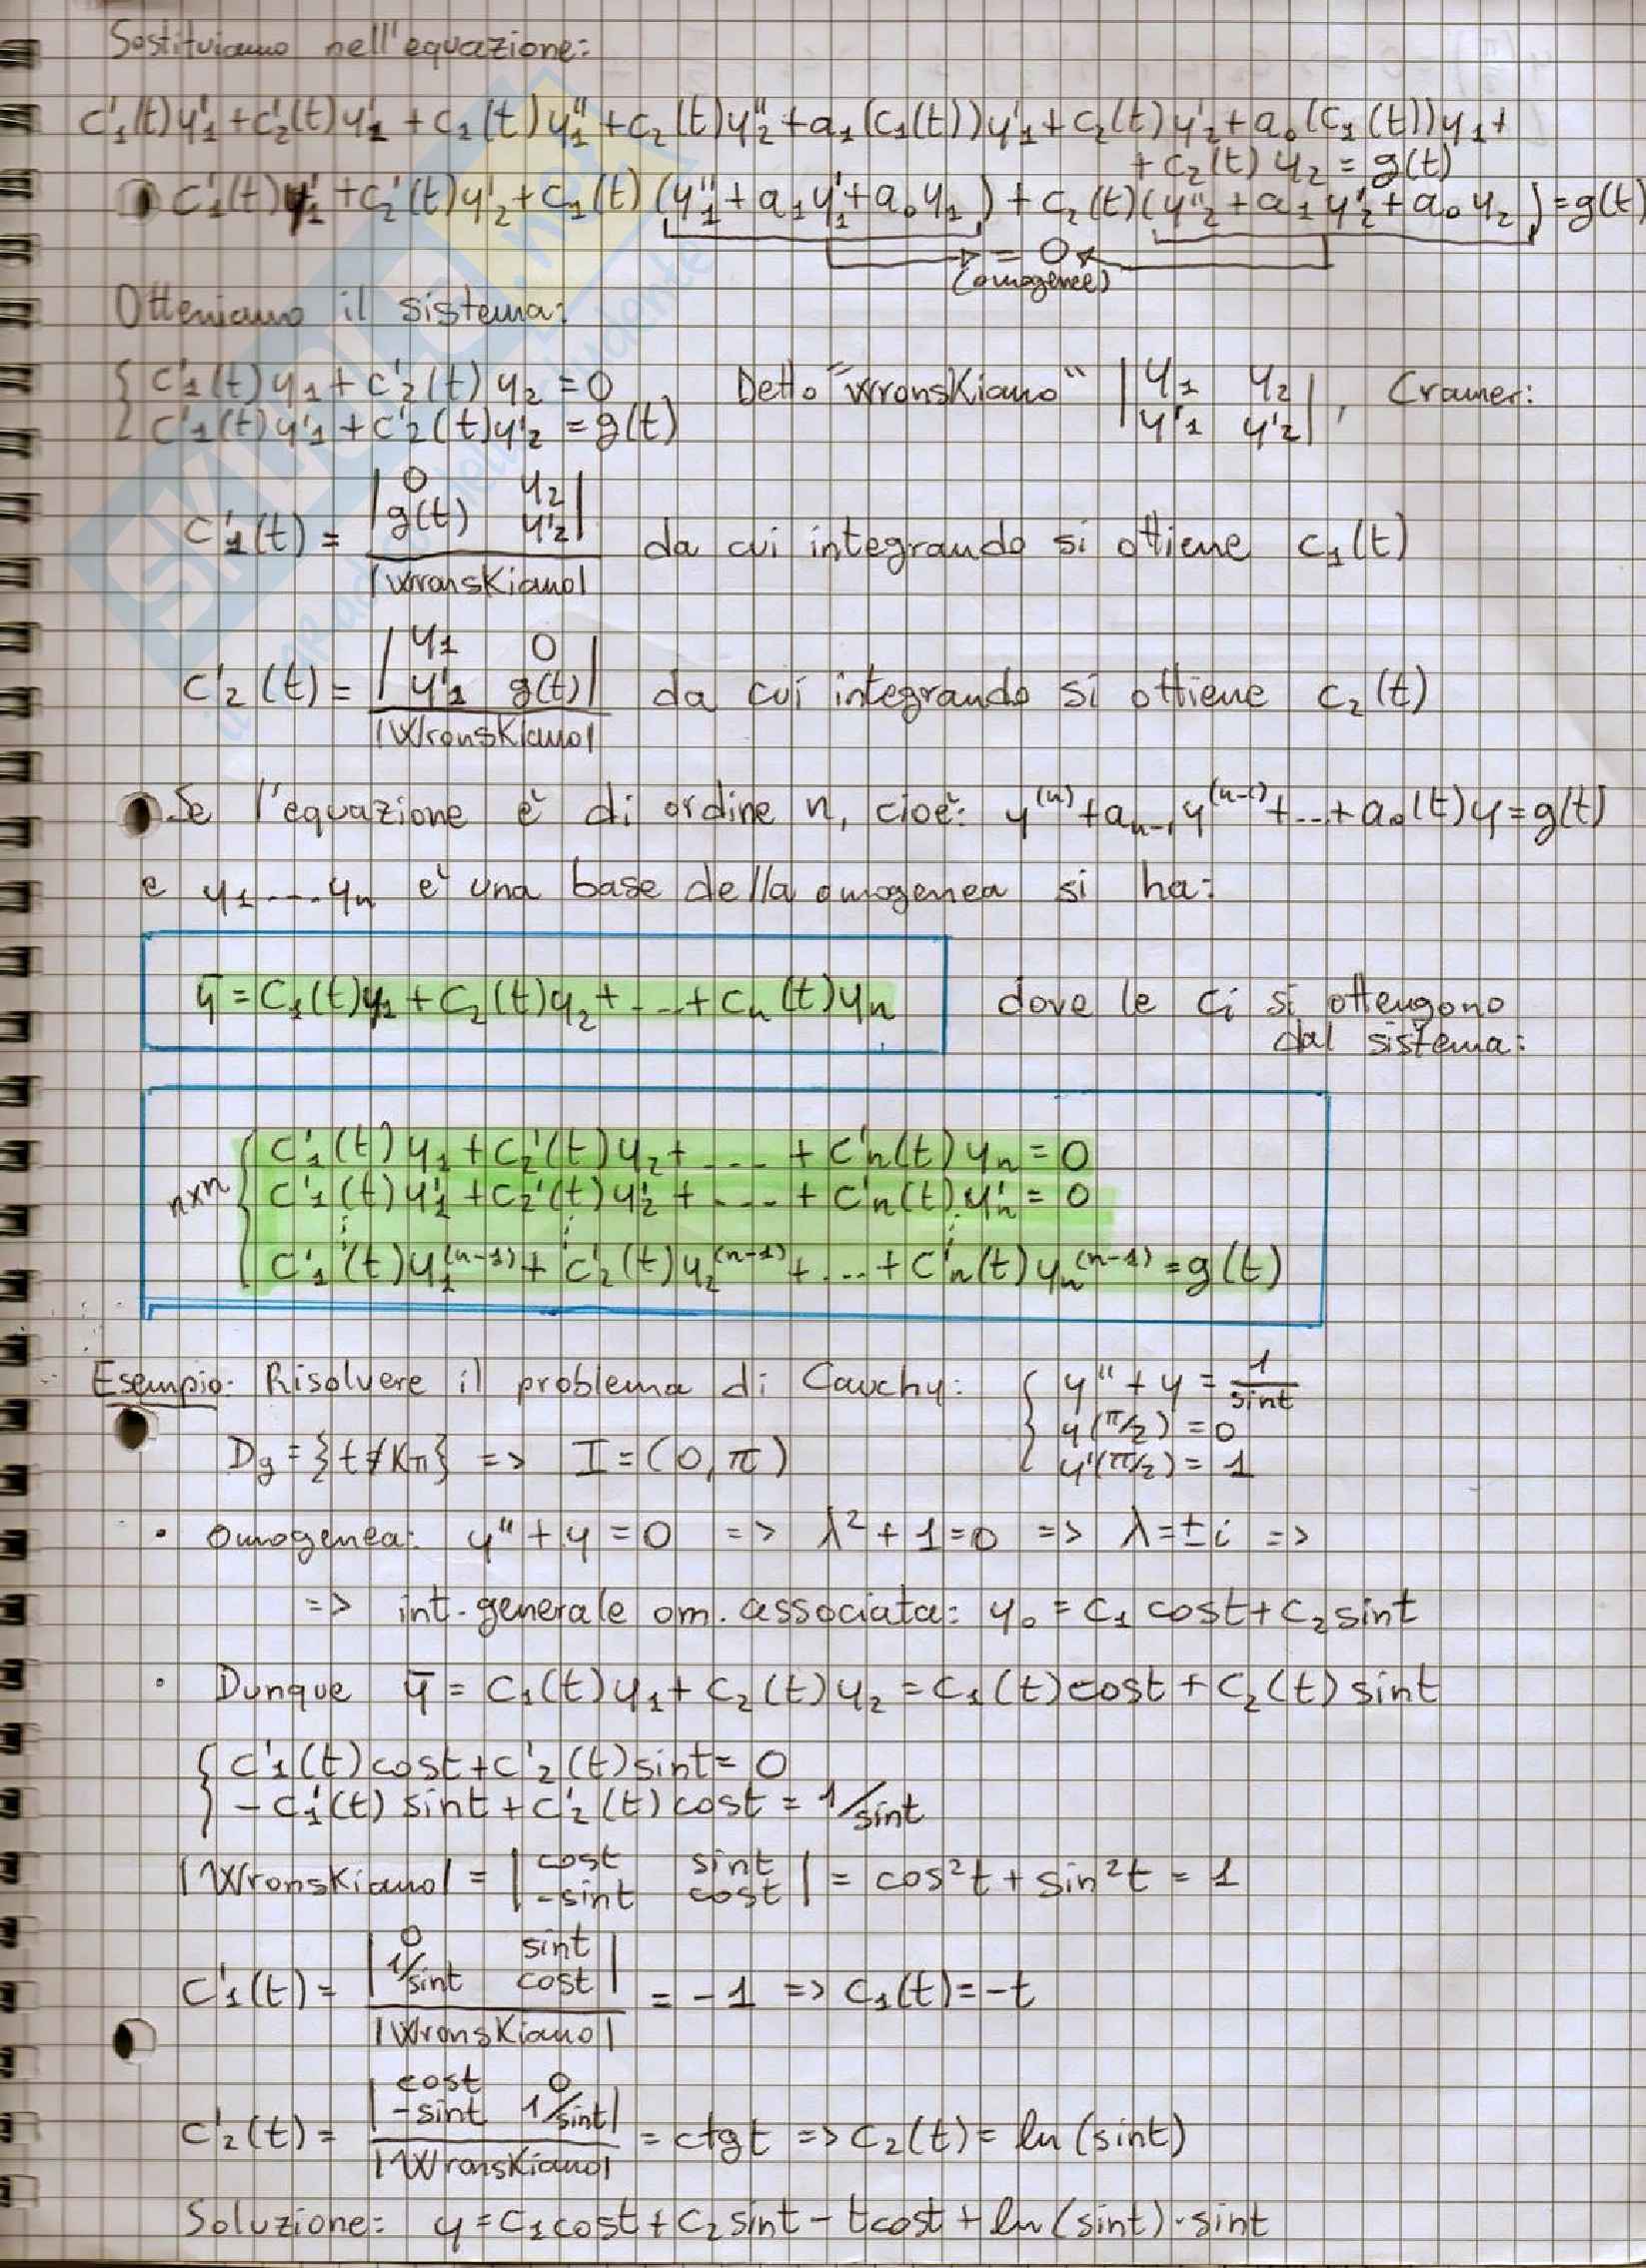 Sostituiamo nell'equazione:
c'₁(t)y'₁ + c'₂(t)y'₂ + c₁(t)y''₁ + c₂(t)y''₂ + a₁(c₁(t))y'₁ + c₂(t)y'₂ + a₀(c₁(t))y₁ +
+ c₂(t) y₂ = g(t)
c'₁(t)y'₁ + c'₂(t)y'₂ + c₁(t)(y''₁ + a₁y'₁ + a₀y₁) + c₂(t)(y''₂ + a₁y'₂ + a₀y₂) = g(t)
= 0
(omogenee)
Otteniamo il sistema:
{ c'₁(t)y₁ + c'₂(t)y₂ = 0
{ c'₁(t)y'₁ + c'₂(t)y'₂ = g(t)
Detto "Wronskiano" | y₁ y₂ |, Cramer:
| y'₁ y'₂ |
| 0 y₂ |
c'₁(t) = | g(t) y'₂ | da cui integrando si ottiene c₁(t)
|Wronskiano|
| y₁ 0 |
c'₂(t) = | y'₁ g(t) | da cui integrando si ottiene c₂(t)
|Wronskiano|
Se l'equazione è di ordine n, cioè: y⁽ⁿ⁾ + aₙ₋₁y⁽ⁿ⁻¹⁾ + ... + a₀(t)y = g(t)
e y₁ .... yₙ è una base della omogenea si ha:
ȳ = c₁(t)y₁ + c₂(t)y₂ + ... + cₙ(t)yₙ dove le cᵢ si ottengono
dal sistema:
{ c'₁(t)y₁ + c₂'(t)y₂ + .... + c'ₙ(t)yₙ = 0
n×n { c'₁(t)y'₁ + c₂'(t)y'₂ + .... + c'ₙ(t)y'ₙ = 0
⋮ ⋮ ⋮
{ c'₁(t)y₁⁽ⁿ⁻¹⁾ + c'₂(t)y₂⁽ⁿ⁻¹⁾ + ... + c'ₙ(t)yₙ⁽ⁿ⁻¹⁾ = g(t)
Esempio: Risolvere il problema di Cauchy: { y'' + y = 1/sint
{ y(π/2) = 0
{ y'(π/2) = 1
Dg = {t ≠ Kπ} => I = (0, π)
• Omogenea: y'' + y = 0 => λ² + 1 = 0 => λ = ± i =>
=> int. generale om. associata: y₀ = c₁ cost + c₂ sint
• Dunque ȳ = c₁(t)y₁ + c₂(t)y₂ = c₁(t)cost + c₂(t)sint
{ c'₁(t)cost + c'₂(t)sint = 0
{ - c'₁(t) sint + c'₂(t)cost = 1/sint
|Wronskiano| = | cost sint | = cos²t + sin²t = 1
| -sint cost |
| 0 sint |
c'₁(t) = | 1/sint cost | = -1 => c₁(t) = -t
|Wronskiano|
| cost 0 |
c'₂(t) = | -sint 1/sint | = ctgt => c₂(t) = ln(sint)
|Wronskiano|
Soluzione: y = c₁cost + c₂sint - tcost + ln(sint)·sint